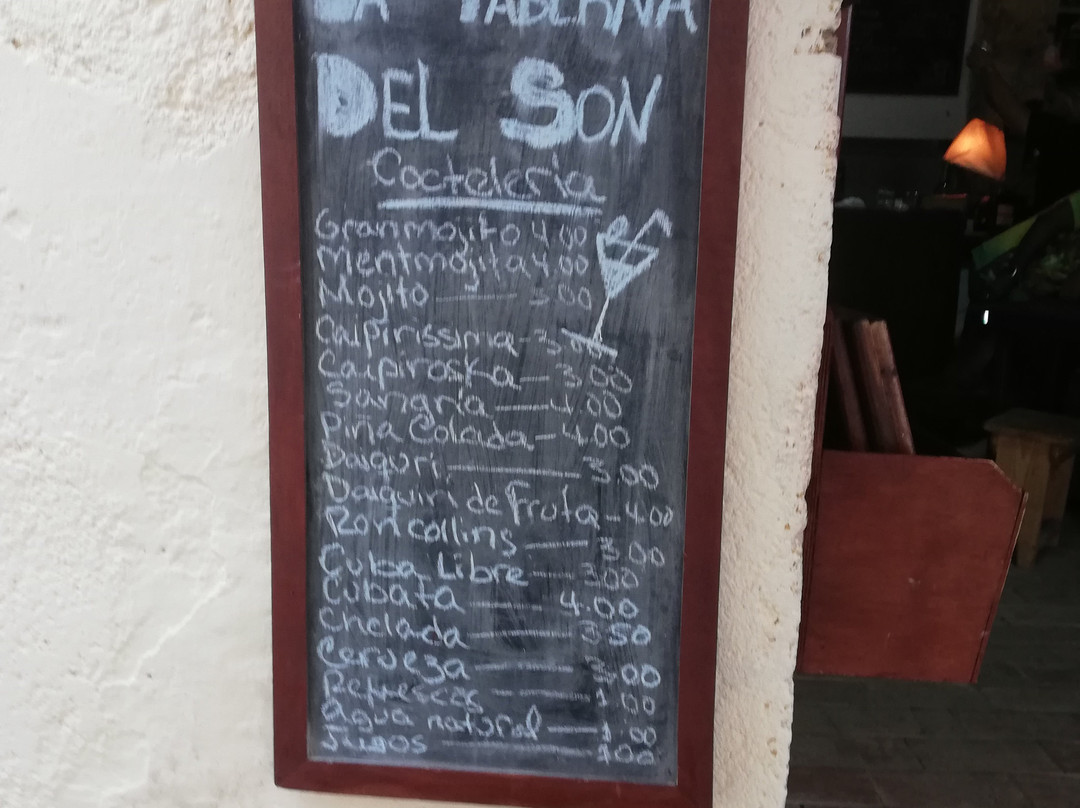 LA TABERNA
DEL SON
Coctelería
Granmojito 4.00
Mentmojita 4.00
Mojito 3.00
Caipirissima - 3.00
Caipiroska - 3.00
Sangría - 4.00
Piña Colada - 4.00
Daiquri - 3.00
Daiquiri de Fruta - 4.00
Ron collins - 3.00
Cuba Libre - 3.00
Cubata - 4.00
Chelada - 3.50
Cerveza - 3.00
Refrescos - 1.00
Agua natural - 1.00
Jugos - 1.00